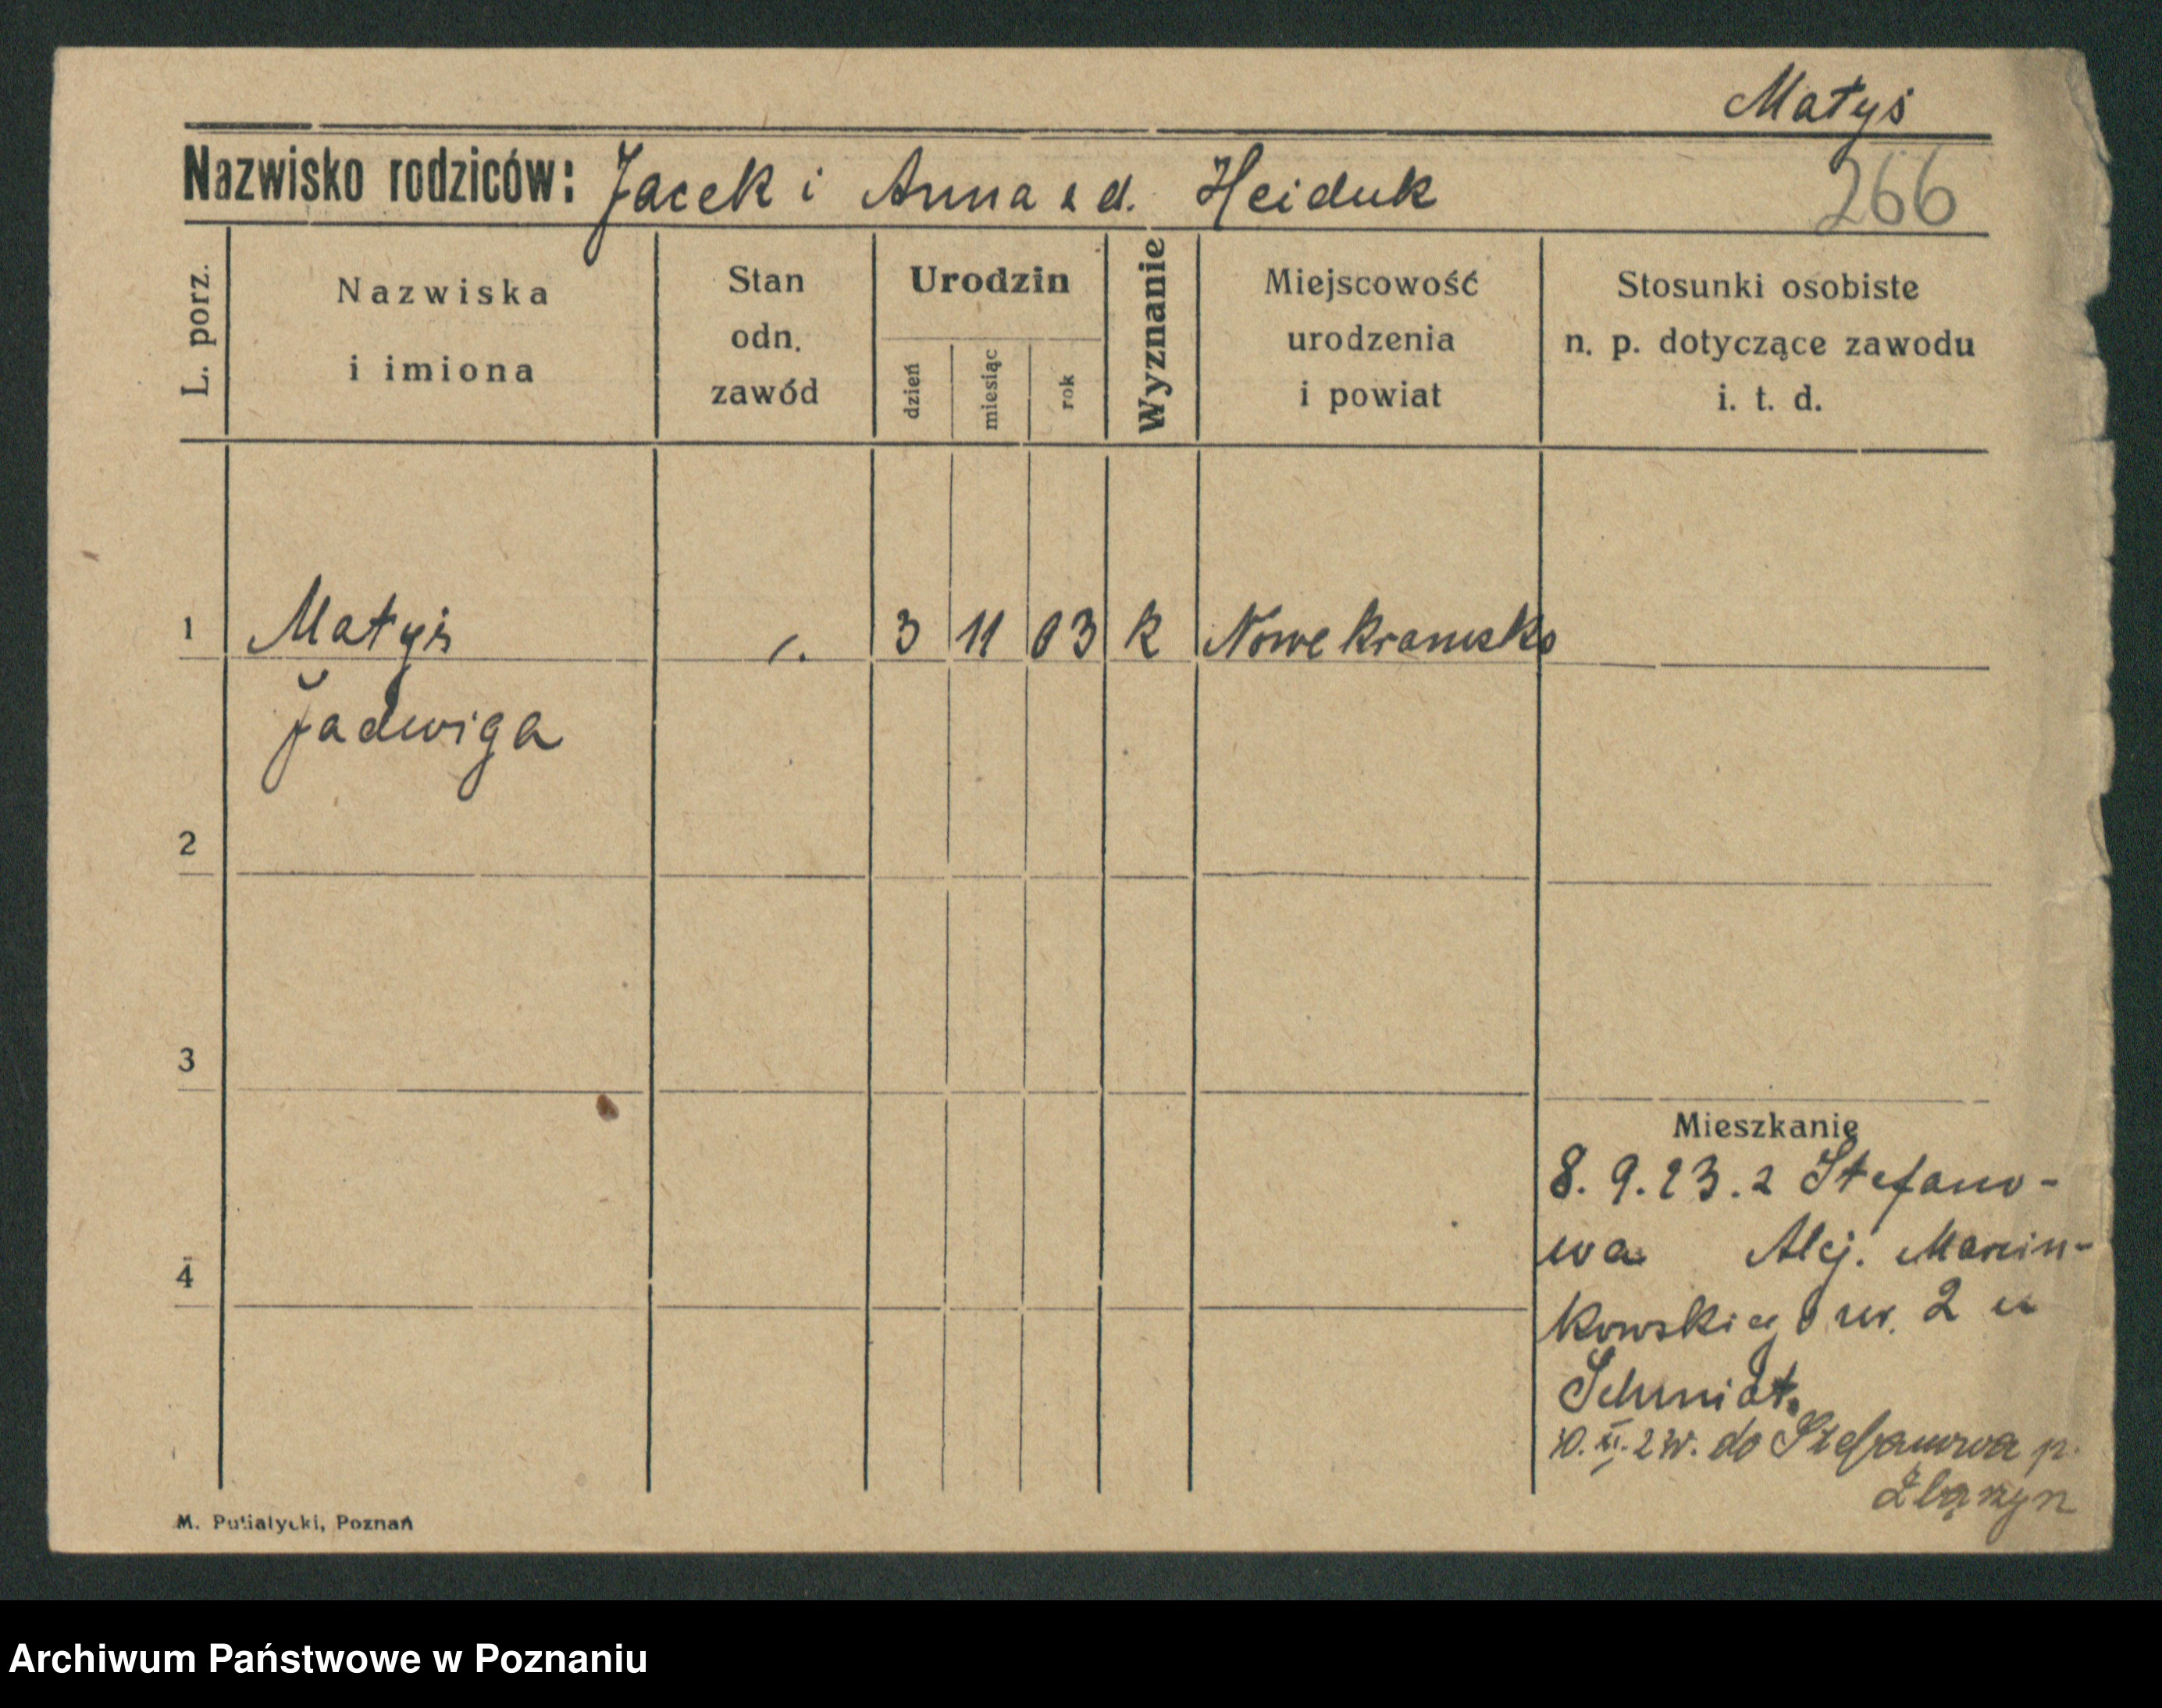 Matyś
Nazwisko rodziców: Jacek i Anna z d. Heiduk
266
L. porz.
Nazwiska
i imiona
Stan
odn.
zawód
Urodzin
dzień
miesiąc
rok
Wyznanie
Miejscowość
urodzenia
i powiat
Stosunki osobiste
n. p. dotyczące zawodu
i. t. d.
1 Matyś 3 11 03 k Nowe Kramsko
Jadwiga
2
3
4
Mieszkanie
8. 9. 23. z Stefano-
wa Alej. Marcin-
kowskiego nr. 2 u
Schmidt.
do Stefanowa p.
Zbąszyn
M. Putiatycki, Poznań
Archiwum Państwowe w Poznaniu